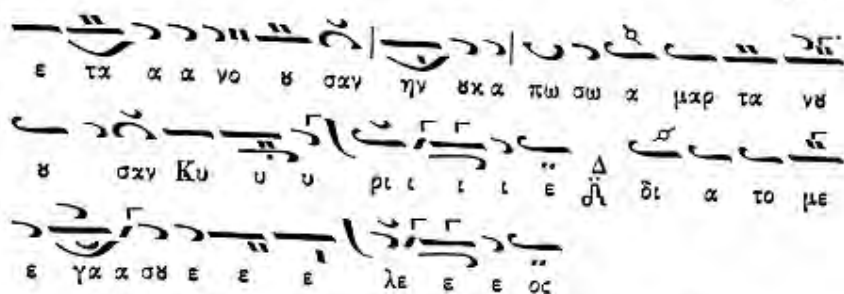 ε τα α α νο ȣ σαν ην ȣκ α πω σω α μαρ τα νȣ
ȣ σαν Κυ υ υ ρι ι ι ι ε Δ δι α το με
ε γα α σȣ ε ε ε λε ε ε ος